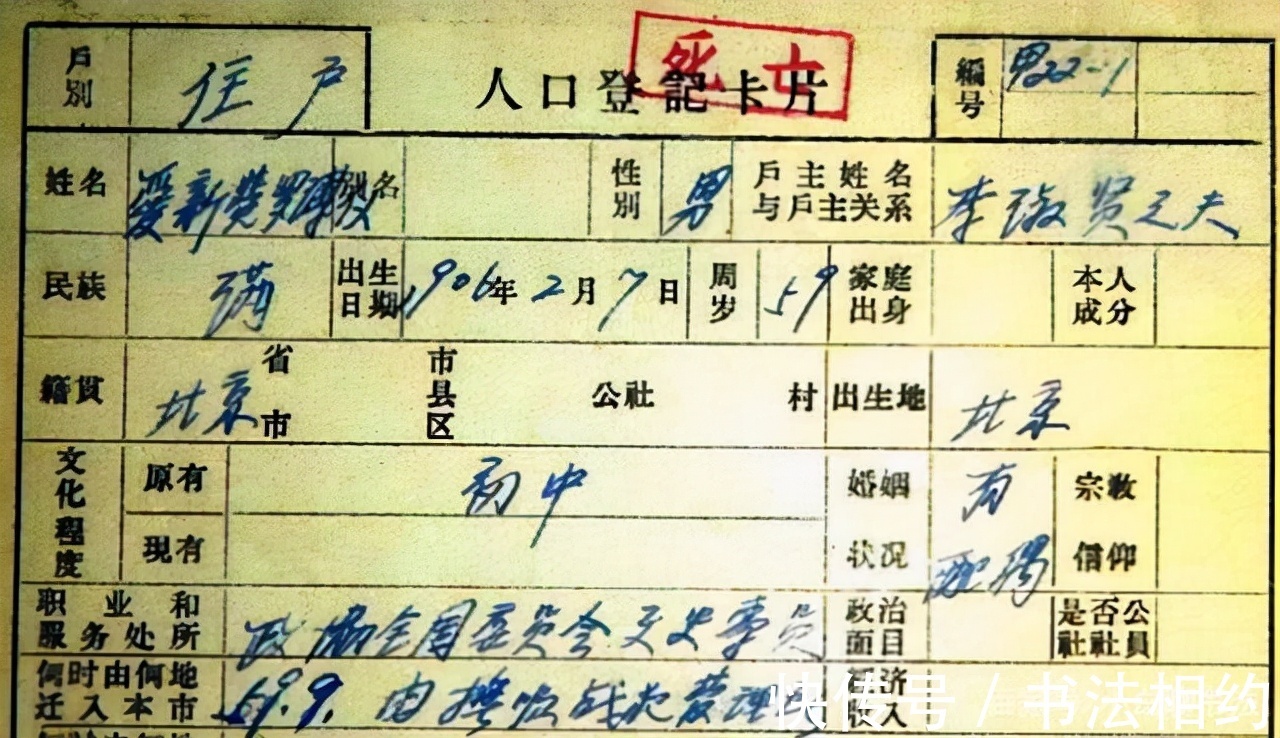 死亡
户别 住户 人口登記卡片 編号 男22-1
姓名 爱新觉罗 别名 性别 男 户主姓名 李淑贤之夫
与户主关系
民族 满 出生日期 1906年2月7日 周岁 59 家庭出身 本人成分
籍贯 北京 省市 市县区 公社 村 出生地 北京
文化程度 原有 初中 婚姻 有 宗教
現有 状况 配偶 信仰
职业和 政协全国委员会文史专员 政治 是否公
服务处所 面目 社社員
何时由何地 59.9. 由撫顺战犯管理
迁入本市 收入
快传号/书法相约